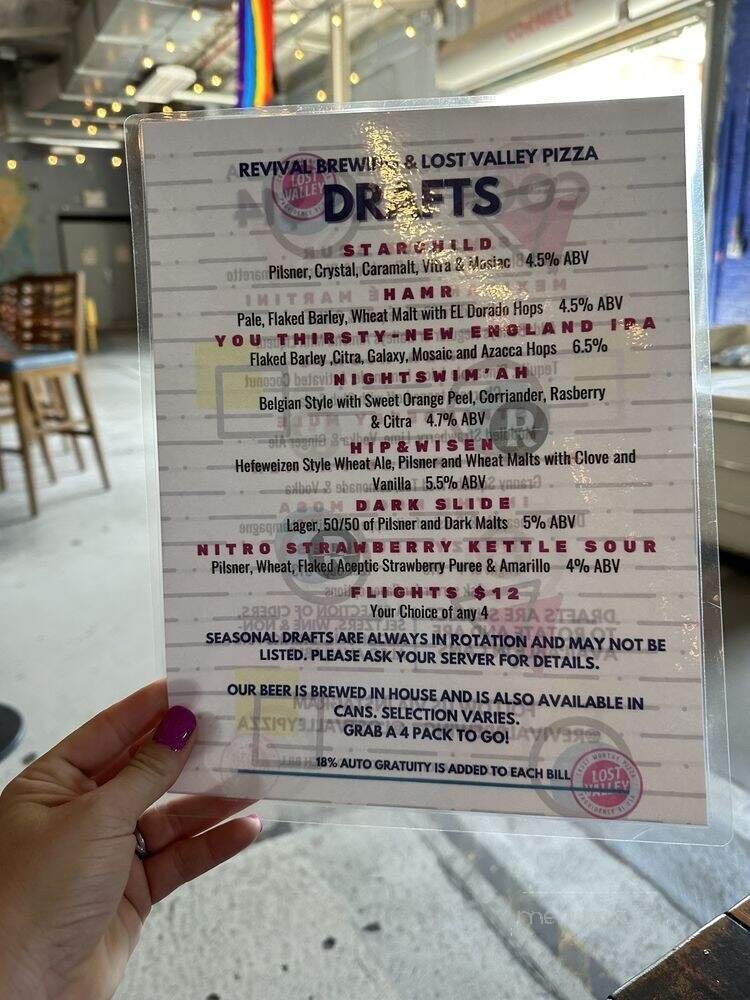 CORNELL
REVIVAL BREWING & LOST VALLEY PIZZA
DRAFTS
STARCHILD
Pilsner, Crystal, Caramalt, Vitra & Mosiac 4.5% ABV
HAMR
Pale, Flaked Barley, Wheat Malt with EL Dorado Hops 4.5% ABV
YOU THIRSTY-NEW ENGLAND IPA
Flaked Barley ,Citra, Galaxy, Mosaic and Azacca Hops 6.5%
NIGHTSWIM'AH
Belgian Style with Sweet Orange Peel, Corriander, Rasberry
& Citra 4.7% ABV
HIP&WISEN
Hefeweizen Style Wheat Ale, Pilsner and Wheat Malts with Clove and
Vanilla 5.5% ABV
DARK SLIDE
Lager, 50/50 of Pilsner and Dark Malts 5% ABV
NITRO STRAWBERRY KETTLE SOUR
Pilsner, Wheat, Flaked Aceptic Strawberry Puree & Amarillo 4% ABV
FLIGHTS $12
Your Choice of any 4
SEASONAL DRAFTS ARE ALWAYS IN ROTATION AND MAY NOT BE
LISTED. PLEASE ASK YOUR SERVER FOR DETAILS.
OUR BEER IS BREWED IN HOUSE AND IS ALSO AVAILABLE IN
CANS. SELECTION VARIES.
GRAB A 4 PACK TO GO!
18% AUTO GRATUITY IS ADDED TO EACH BILL
LOST
VALLEY